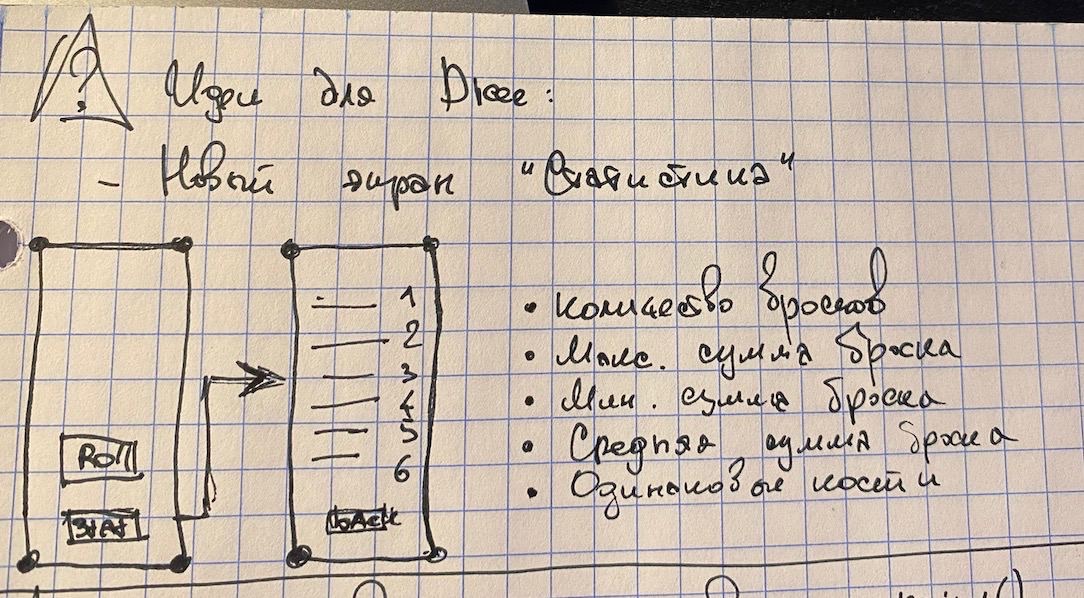 ?
Идеи для Dice:
- Новый экран "Статистика"
1
2
3
4
5
6
Roll
STAT
BACK
• количество бросков
• Макс. сумма броска
• Мин. сумма броска
• Средняя сумма броска
• Одинаковые кости